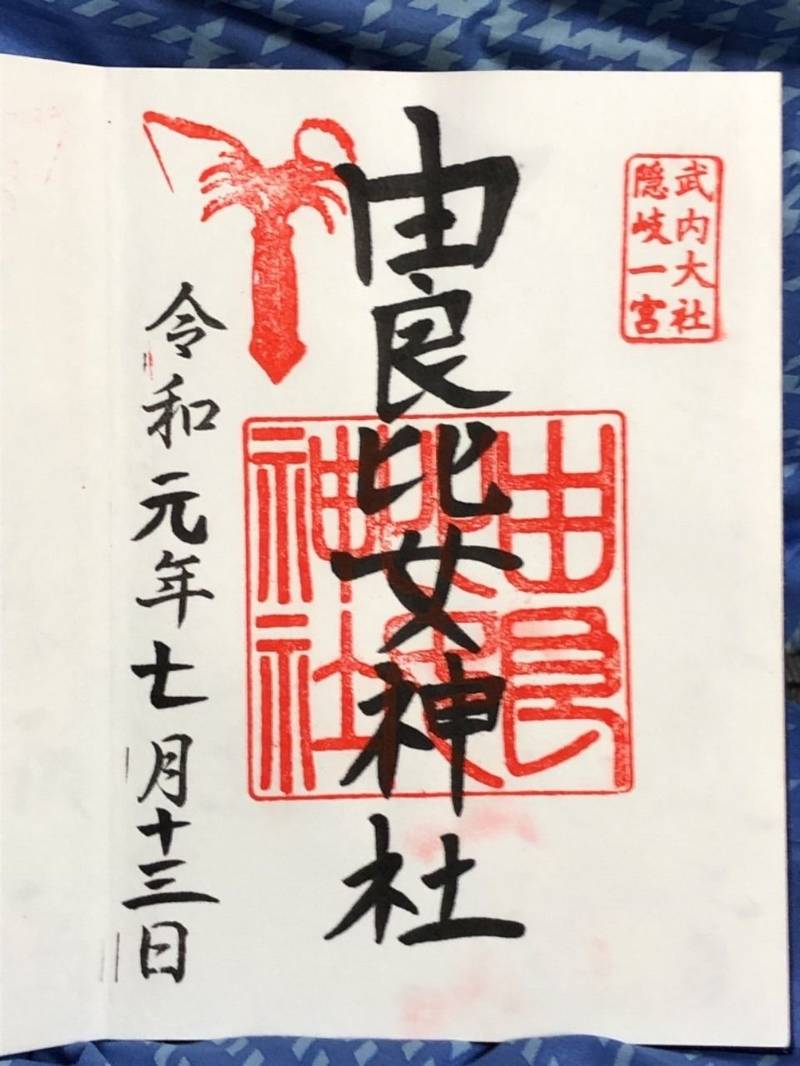 武内大社
隠岐一宮
由良比女神社
由良
比女
神社
令和元年七月十三日